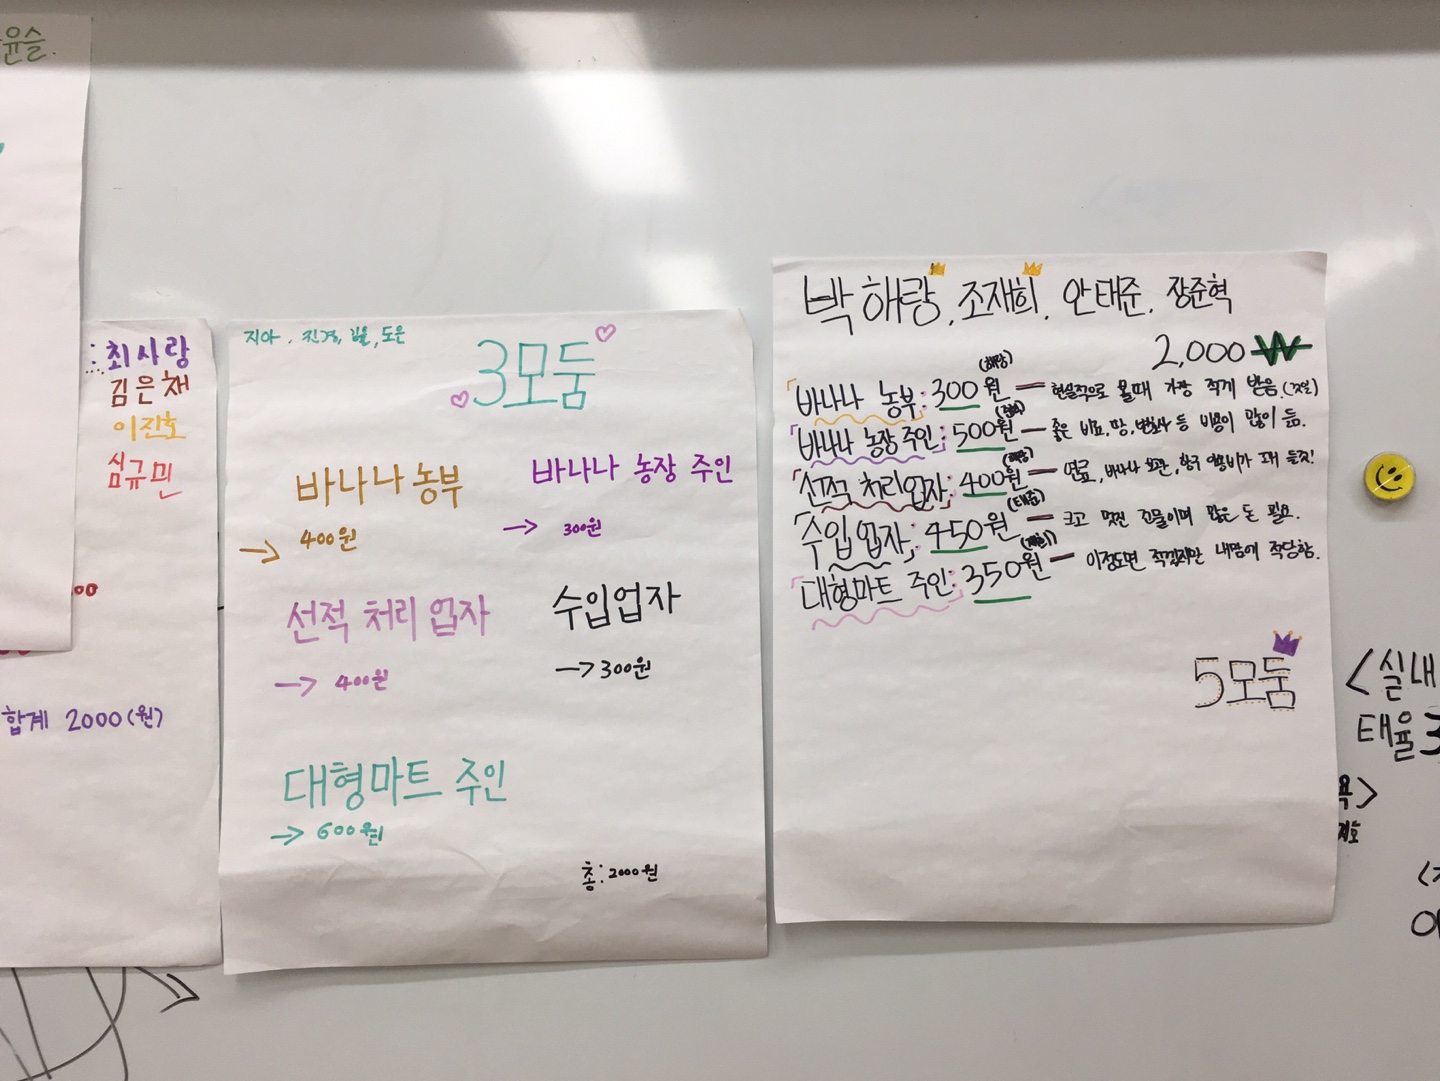 윤슬.
최사랑
김은채
이진호
심규민
00
합계 2000(원)
지아, 진경, 도은
3모둠
바나나 농부
→ 400원
바나나 농장 주인
→ 300원
선적 처리 업자
→ 400원
수입업자
→ 300원
대형마트 주인
→ 600원
총: 2000원
박해랑, 조재희, 안태준, 장준혁
2,000₩
바나나 농부: 300원 (해랑) — 현실적으로 볼때 가장 적게 받음.(제일)
바나나 농장 주인: 500원 (재희) — 좋은 비료, 땅, 변호사 등 비용이 많이 듦.
선적 처리업자: 400원 (해랑) — 연료, 바나나 보관, 항구 이 꽤 들지!
수입 업자: 450원 (태준) — 크고 멋진 건물이며 많은 돈 필요.
대형마트 주인: 350원 (재희) — 이정도면 적겠지만 내맘에 적당함.
5모둠
<실내
태율3